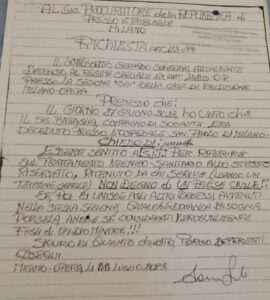 AL SIG. PROCURATORE della REPUBBLICA di
PRESSO IL TRIBUNALE
MILANO
RICHIESTA
IL SOTTOSCRITTO GERARDO SCHETTINO ATTUALMENTE
DETENUTO AL REGIME SPECIALE EX ART. 41 BIS O.P.
PRESSO LA SEZIONE DELLA CASA DI RECLUSIONE
MILANO-OPERA
PREMESSO che:
IL GIORNO 27 GIUGNO 2023 ho che
IL SIG. BATTAGLIA, COMPAGNO DI SOCIALITÀ ERA
DECEDUTO PRESSO L'OSPEDALE SAN PAOLO DI MILANO
CHIEDO DI:
ESSERE SENTITO A PER RIFERIRE
SUL TRATTAMENTO IGIENICO-SANITARIO ALLO STESSO
RISERVATO, RITENUTO DA CHI SCRIVE (USANDO UN
TERMINE GENTILE) NON DEGNO di UN PAESE CIVILE!!
SE POI SI UNISCE AGLI ALTRI DECESSI AVVENUTI
NELLA STESSA SEZIONE, QUALCHE DOMANDA BISOGNA
PORSELA, ANCHE SE CONSIDERATI VEROSIMILMENTE
FIGLI di UN DIO MINORE!!!
SICURO DI QUANTO CHIESTO, PORGO DEFERENTI
OSSEQUI
MILANO-OPERA LUGLIO 2023